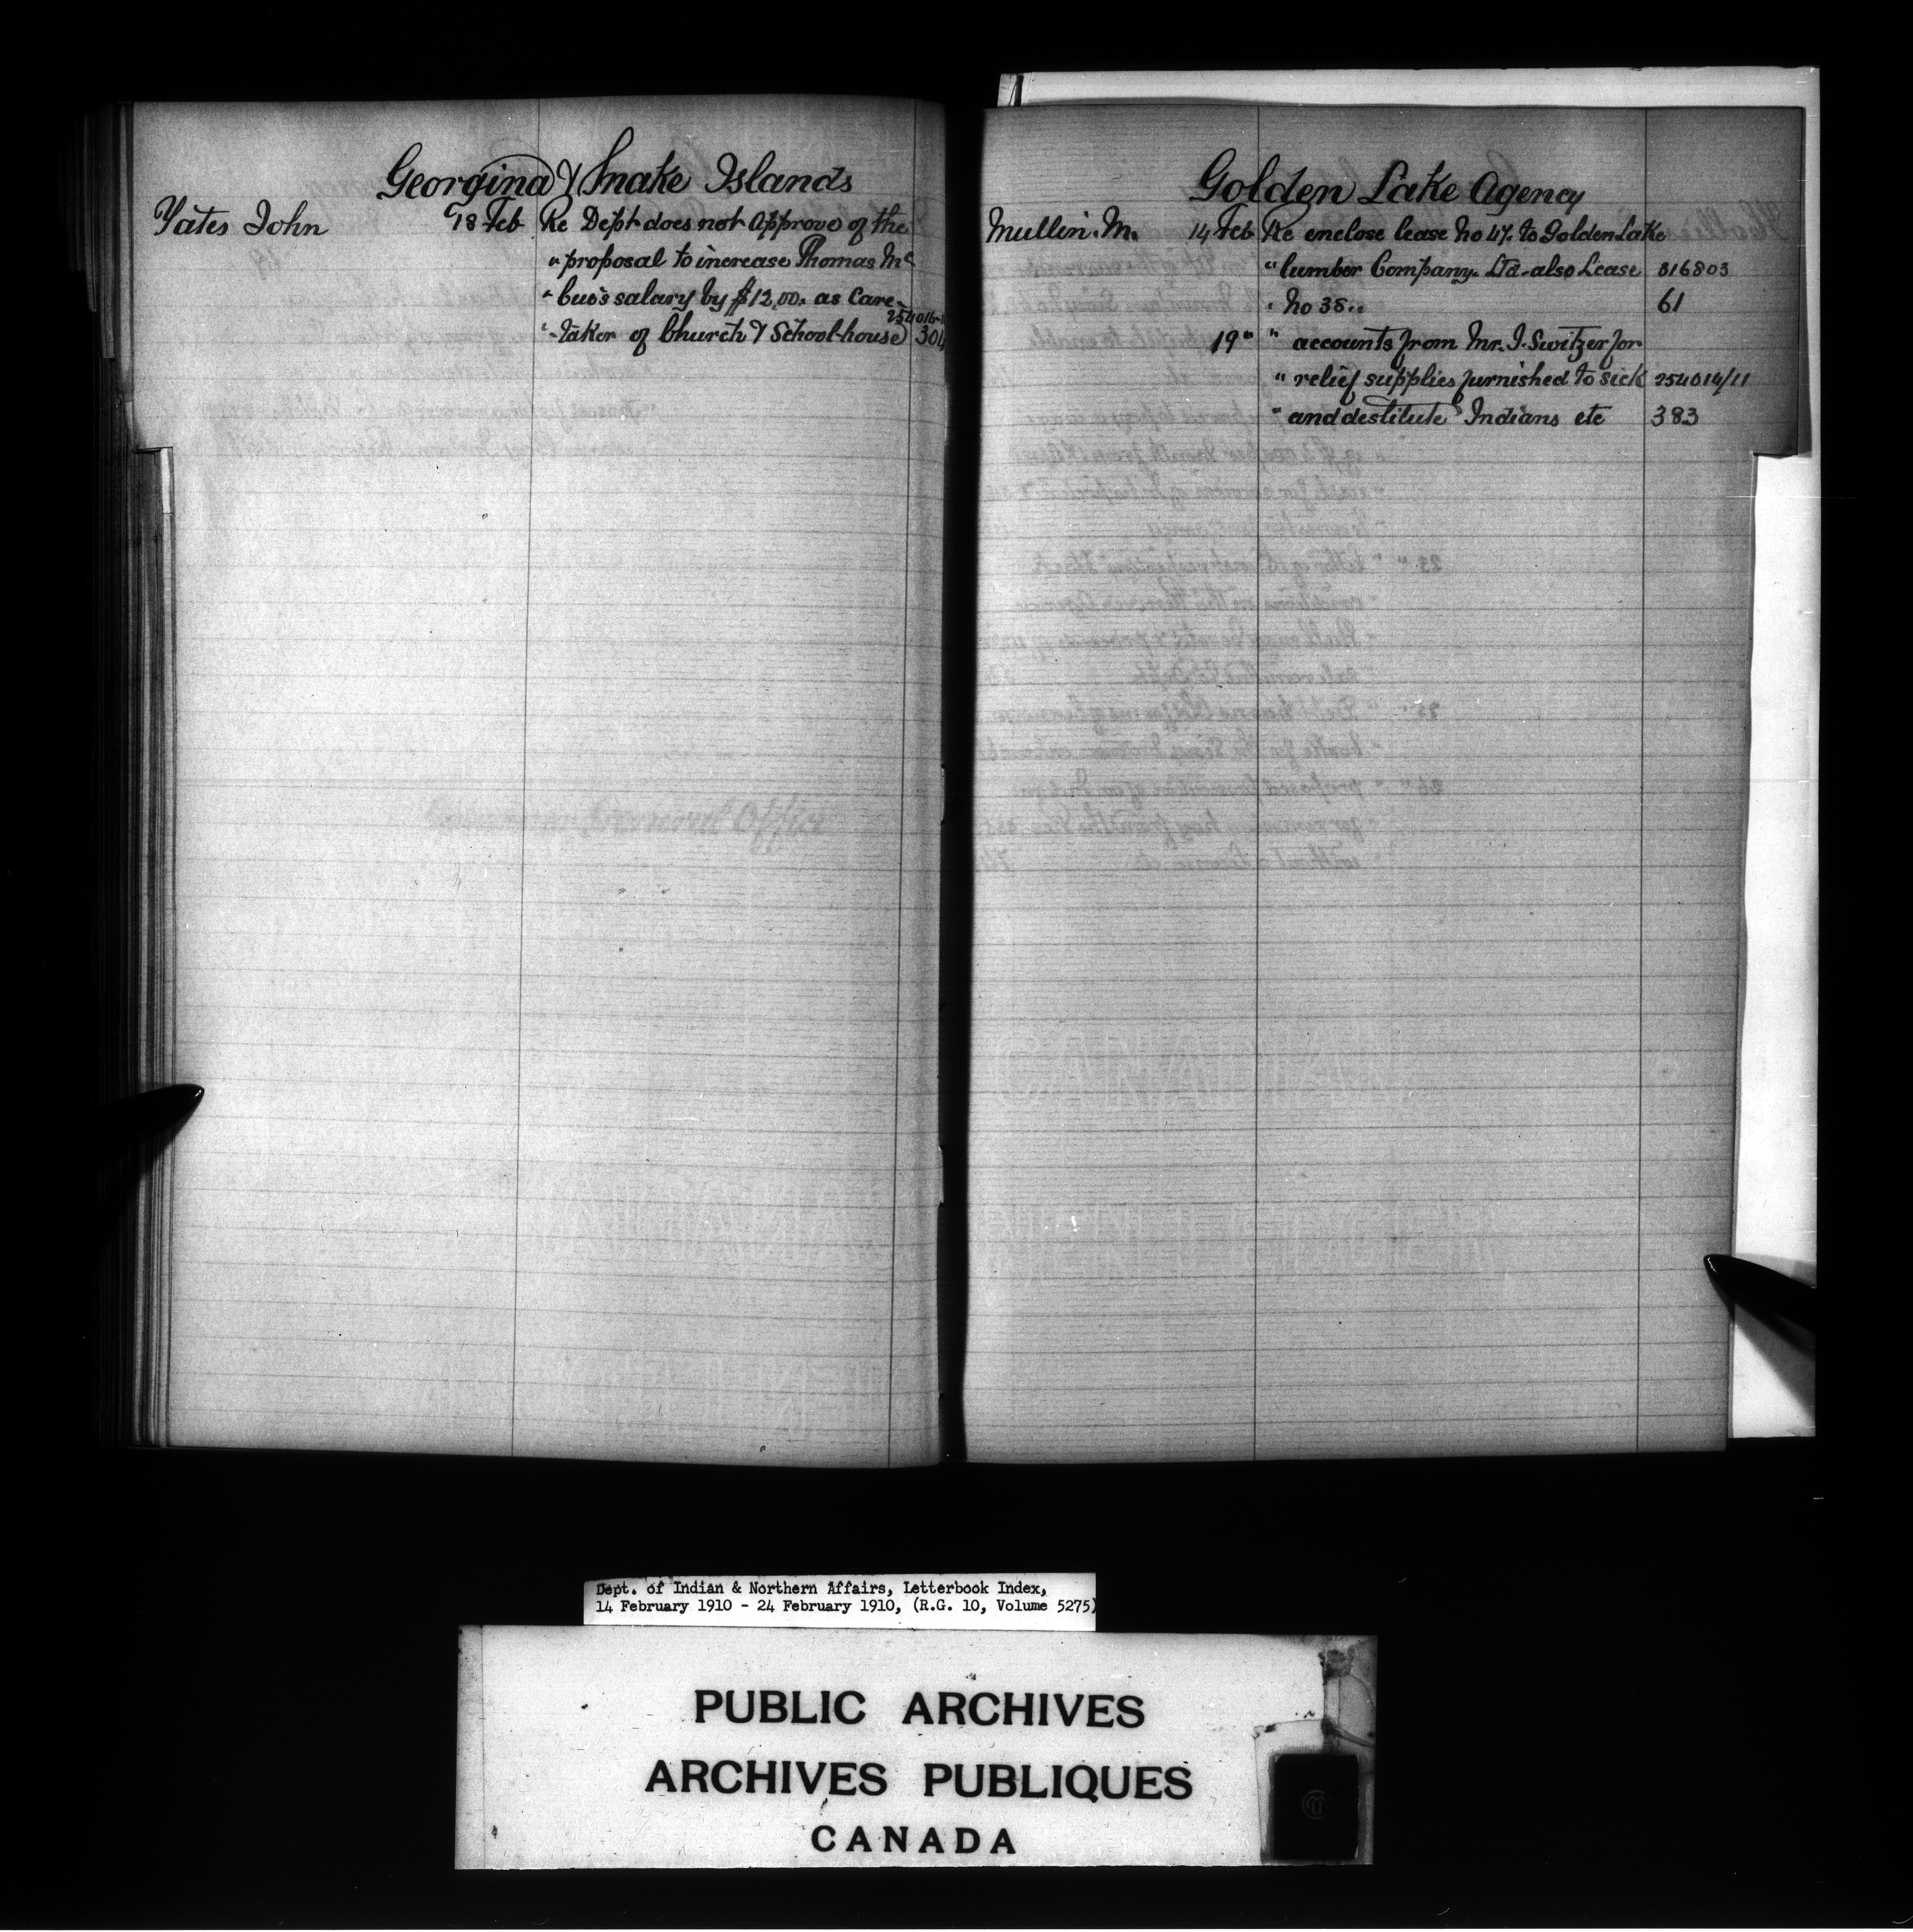 Georgina & Snake Islands
Yates John 18 Feb Re Dept does not Approve of the
" proposal to increase Thomas Mc
" Cue's salary by $12.00. as Care-
254016-1
" -taker of Church & School-house 304
Golden Lake Agency
Mullin. M. 14 Feb Re enclose lease No 47. to Golden Lake
" lumber Company. Ltd. also Lease 316803
" No 38.. 61
19 " " accounts from Mr. J. Switzer for
" relief supplies furnished to sick 254014/11
" and destitute Indians etc 383
Dept. of Indian & Northern Affairs, Letterbook Index,
14 February 1910 - 24 February 1910, (R.G. 10, Volume 5275)
PUBLIC ARCHIVES
ARCHIVES PUBLIQUES
CANADA